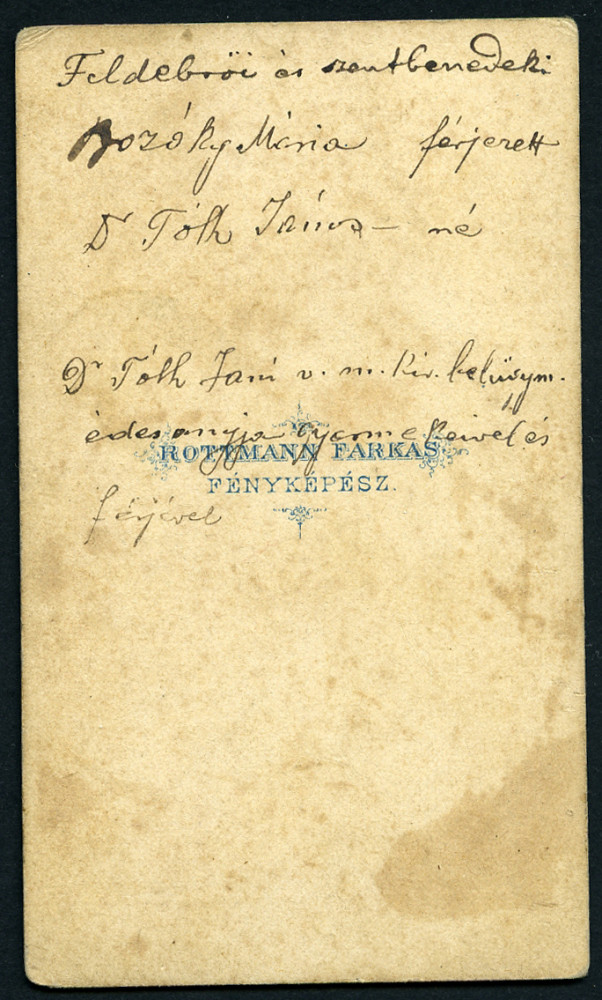 Feldebrői és szentbenedeki
Bozóky Mária férjezett
Dr Tóth János-né
Dr Tóth Jani v. m. kir. belügym.
édesanyja Gyermekeivel és
ROTTMANN FARKAS
FÉNYKÉPÉSZ.
férjével